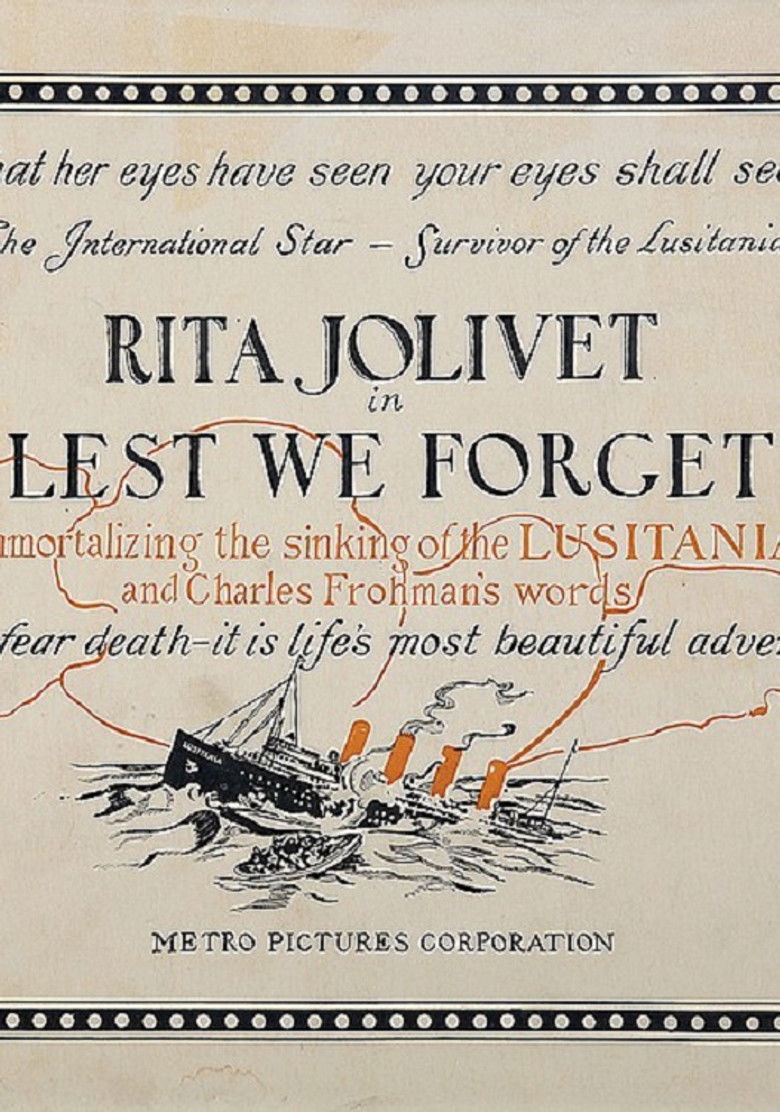 at her eyes have seen your eyes shall se
he International Star – Survivor of the Lusitania
RITA JOLIVET
in
LEST WE FORGET
mortalizing the sinking of the LUSITANIA
and Charles Frohman's words
fear death–it is life's most beautiful adve
LUSITANIA
METRO PICTURES CORPORATION